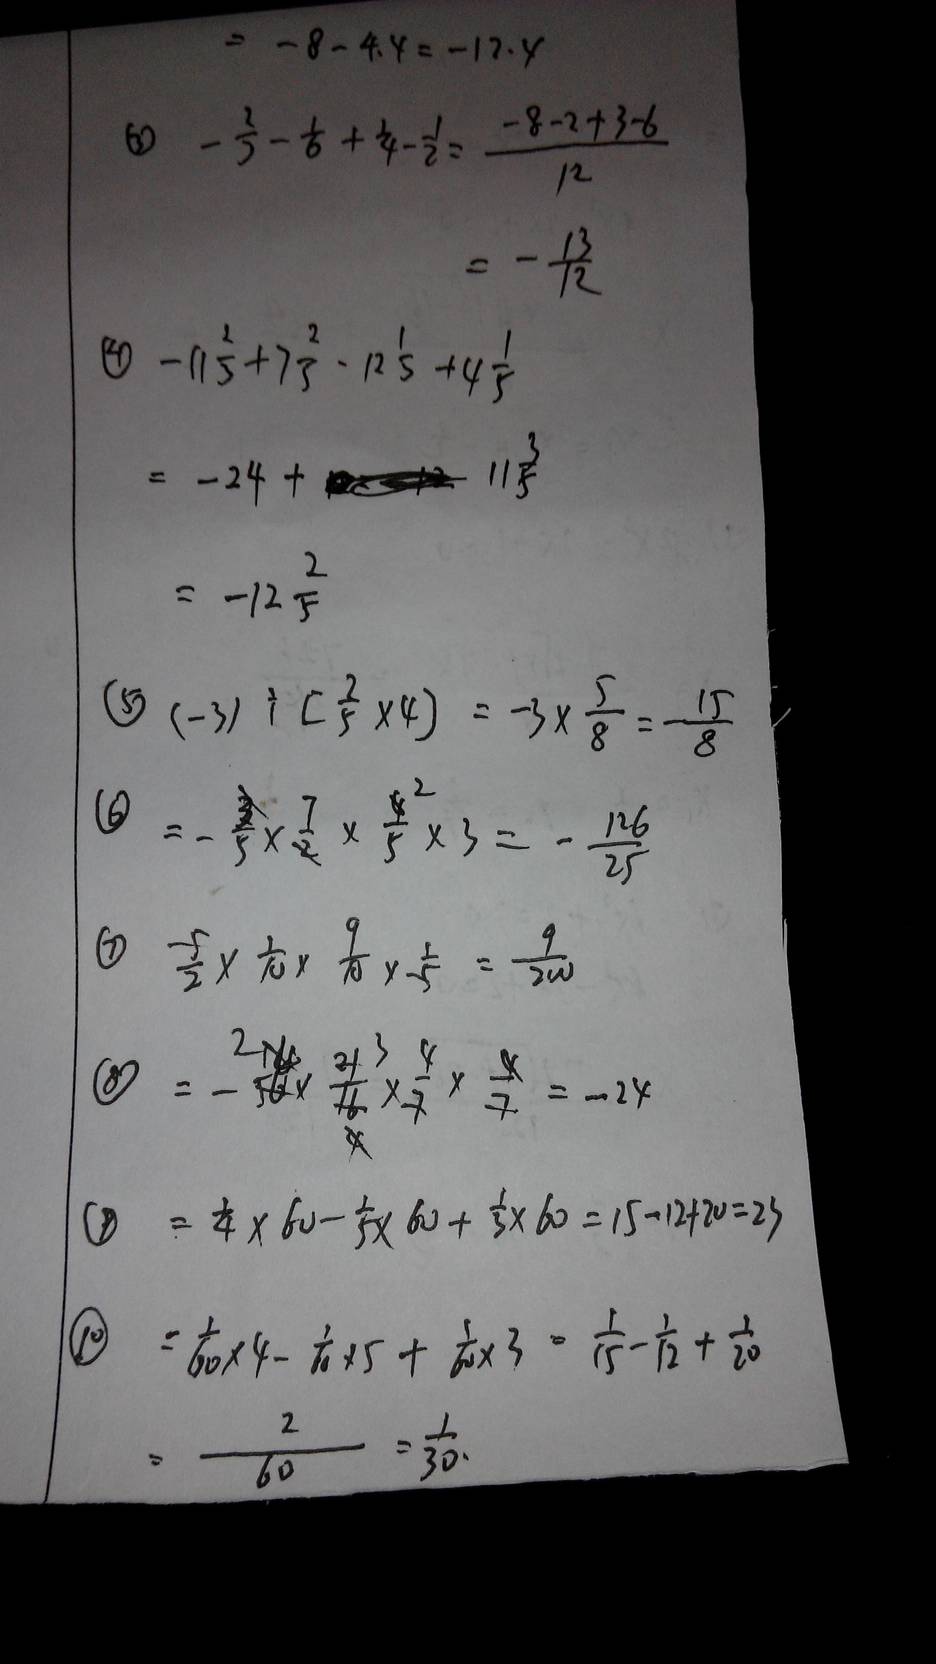 = -8-4.4=-12.4
③ -2/3-1/6+1/4-1/2= (-8-2+3-6)/12
= -13/12
④ -11 2/5+7 2/5-12 1/5+4 1/5
= -24+ 11 3/5
= -12 2/5
⑤ (-3)÷[2/5×4) = -3×5/8=-15/8
⑥ =- /5×7/2× /5×3= -126/25
⑦ 5/2×1/10×9/10×1/5 = 9/200
⑧ =-56×21/16×4/7×4/7=-24
= 1/4×60-1/5×60+1/3×60=15-12+20=23
⑩ =1/60×4-1/60×5+1/60×3=1/15-1/12+1/20
= 2/60 =1/30.